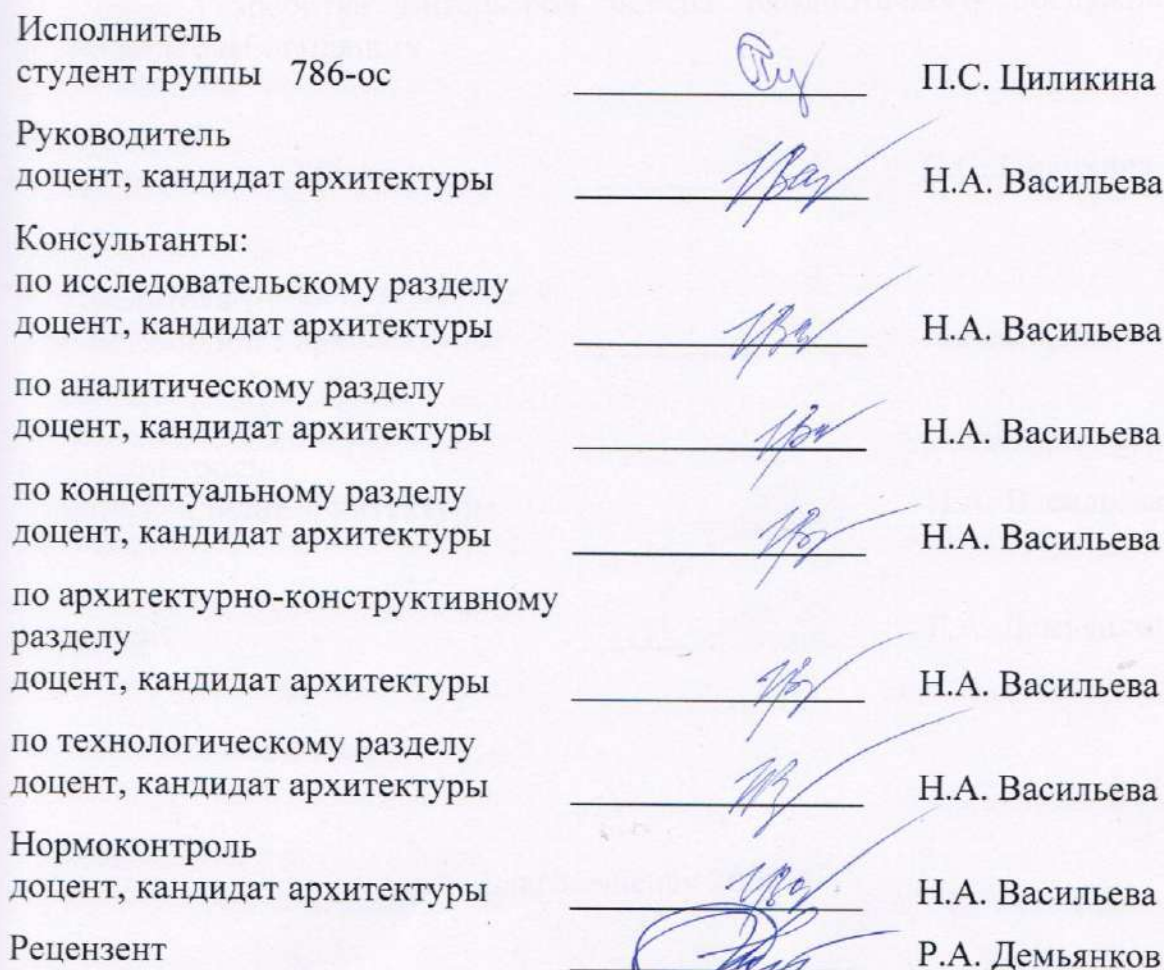 Исполнитель
студент группы 786-ос П.С. Циликина
Руководитель
доцент, кандидат архитектуры Н.А. Васильева
Консультанты:
по исследовательскому разделу
доцент, кандидат архитектуры Н.А. Васильева
по аналитическому разделу
доцент, кандидат архитектуры Н.А. Васильева
по концептуальному разделу
доцент, кандидат архитектуры Н.А. Васильева
по архитектурно-конструктивному
разделу
доцент, кандидат архитектуры Н.А. Васильева
по технологическому разделу
доцент, кандидат архитектуры Н.А. Васильева
Нормоконтроль
доцент, кандидат архитектуры Н.А. Васильева
Рецензент Р.А. Демьянков